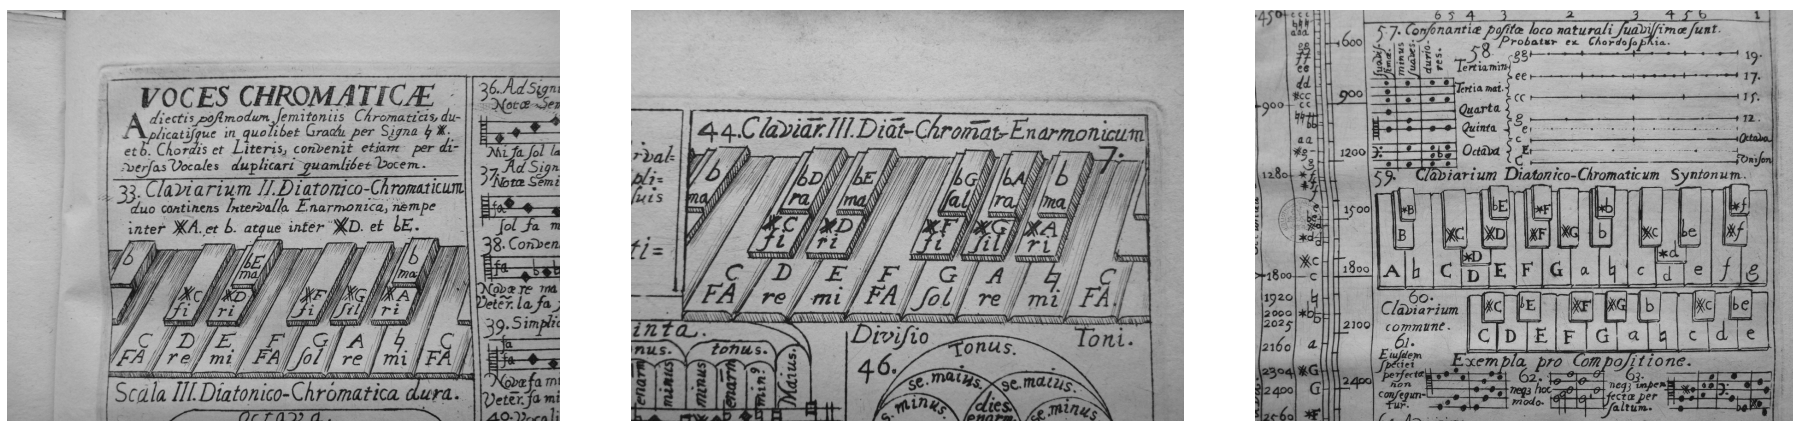 VOCES CHROMATICÆ
Adiectis postmodum semitoniis Chromaticis, du-
plicatisque in quolibet Gradu per Signa ♮ 𝄪.
et b. Chordis et Literis, convenit etiam per di-
versas Vocales duplicari quamlibet Vocem.
33. Claviarium II. Diatonico-Chromaticum
duo continens Intervalla Enarmonica, nempe
inter 𝄪A. et b. atque inter 𝄪D. et bE.
b bE b
ma ma
𝄪C 𝄪D 𝄪F 𝄪G 𝄪A
fi ri fi sil ri
C D E F G A ♮ C
FA re mi FA sol re mi FA
Scala III. Diatonico-Chromatica dura.
octava.
36. Ad Signi
Notæ Sem
Mi fa sol la
37. Ad Sign
Notæ Semi
fa
sol fa m
38. Conven
fa
Novæ re ma
Veter. la fa
39. Simplic
fa
fa
Novæ fa mi
Veter. fa mi
40. Vocali
44. Claviar. III. Diat-Chromat-Enarmonicum
7.
b bD bE bG bA b
ma ra ma sal ra ma
𝄪C 𝄪D 𝄪F 𝄪G 𝄪A
fi ri fi sil ri
C D E F G A ♮ C
FA re mi FA sol re mi FA.
inta.
nus. tonus. Maius.
minus minus
Divisio Toni.
46. Tonus.
se.maius. se.maius.
s.minus. dies. se.minus
enarm
6 5 4 3 2 3 4 5 6 1
57. Consonantiæ positæ loco naturali suavissimæ sunt.
Probatur ex Chordosophia.
suavis-
simæ.
minus
suaves.
durio-
res.
58.
Tertia min. gg 19.
ee 17.
Tertia mai. cc 15.
Quarta g 12.
Quinta e
c Octava
Octava E
C Unison
59. Claviarium Diatonico-Chromaticum Syntonum.
𝄪B bE 𝄪F 𝄪b 𝄪f
B 𝄪C 𝄪D 𝄪F 𝄪G b 𝄪c be 𝄪f
𝄪D 𝄪d
A ♮ C D E F G a ♮ c d e f g
60.
Claviarium
commune.
𝄪C bE 𝄪F 𝄪G b 𝄪c be
C D E F G a ♮ c d e
61.
Eiusdem
speciei
perfectæ
non
consequn-
tur.
Exempla pro Compositione.
62.
neq3 hoc
modo.
63.
neq3 imper-
fectæ per
saltum.
450
600
900
900
1200
1280
1500
1800
1800
1920
2000
2025
2100
2160
2304
2400
2560